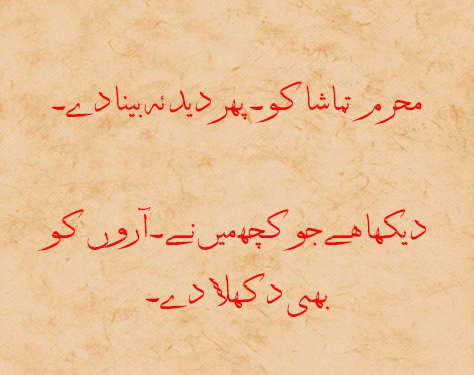 محرم تماشا کو۔ پھر دیدئہ بینا دے۔
دیکھا ھے جو کچھ میں نے۔ آروں کو
بھی دکھلا دے۔